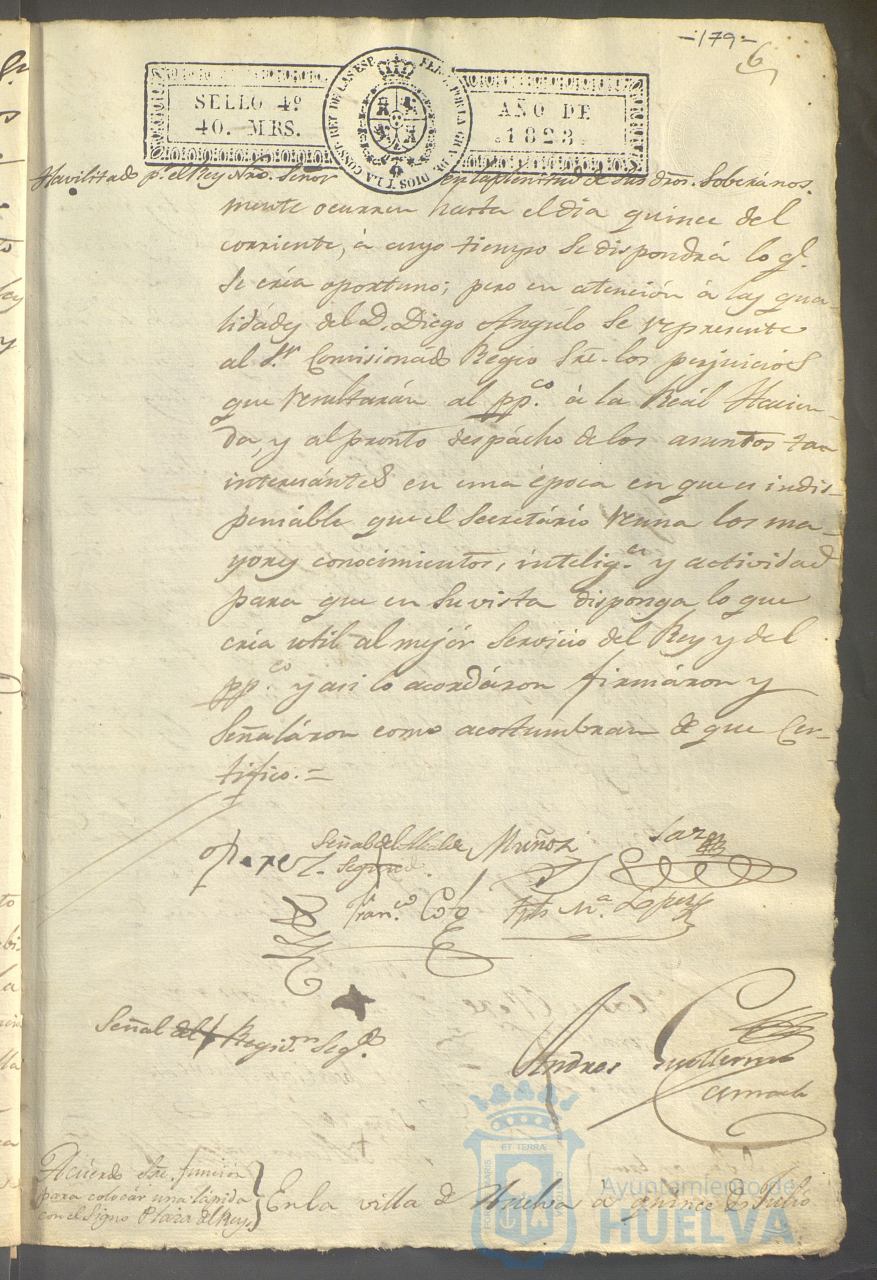 -179-
6
SELLO 4º
40. MRS.
AÑO DE
1823
FERN. POR LA GR. DE DIOS Y LA CONST. REY DE LAS ESP.
Havilitado pr. el Rey Nro. Señor en la plenitud de sus dros. Soberanos.
mente ocurren hasta el dia quince del
corriente, á cuyo tiempo se dispondrá lo q.l
se créa oportuno; pero en atención á las qua-
lidádes del D. Diego Angúlo se represente
al S.r Comisionádo Regio Sre. los perjuicios
que resultarán al pp.co á la Reál Hacien-
da, y al pronto despácho de los asuntos tan
interesántes en una época en que es indis-
pensáble que el Secretário reuna los ma-
yores conocimientos, intelig.cia y actividad
para que en su vista disponga lo que
créa util al mejór Servicio del Rey y del
pp.co y asi lo acordáron firmáron y
Señaláron como acostumbran de que Cer-
tifico.=
Perez. Señal del Muñoz
Segund.
Fran.co M.a Lopez
Señal del Regid.or Seg.do
Andres Guillermo
Camacho
Acuerdo Sre. función
para colocár una lapida
con el Signo Plaza del Rey
En la villa de Huelva a quince de Julio
Ayuntamiento de
HUELVA